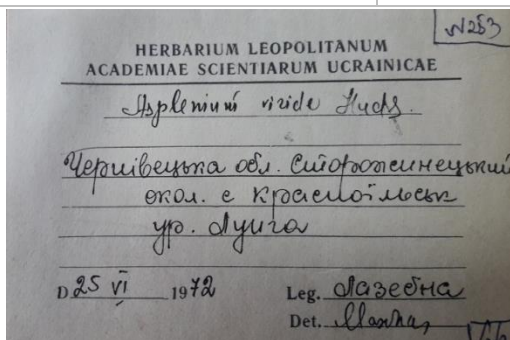 N253
HERBARIUM LEOPOLITANUM
ACADEMIAE SCIENTIARUM UCRAINICAE
Asplenium viride Huds.
Чернівецька обл. Сторожинецький
окол. с Красноїльськ
ур. Лунга
D 25 VI 1972
Leg. Лазебна
Det.